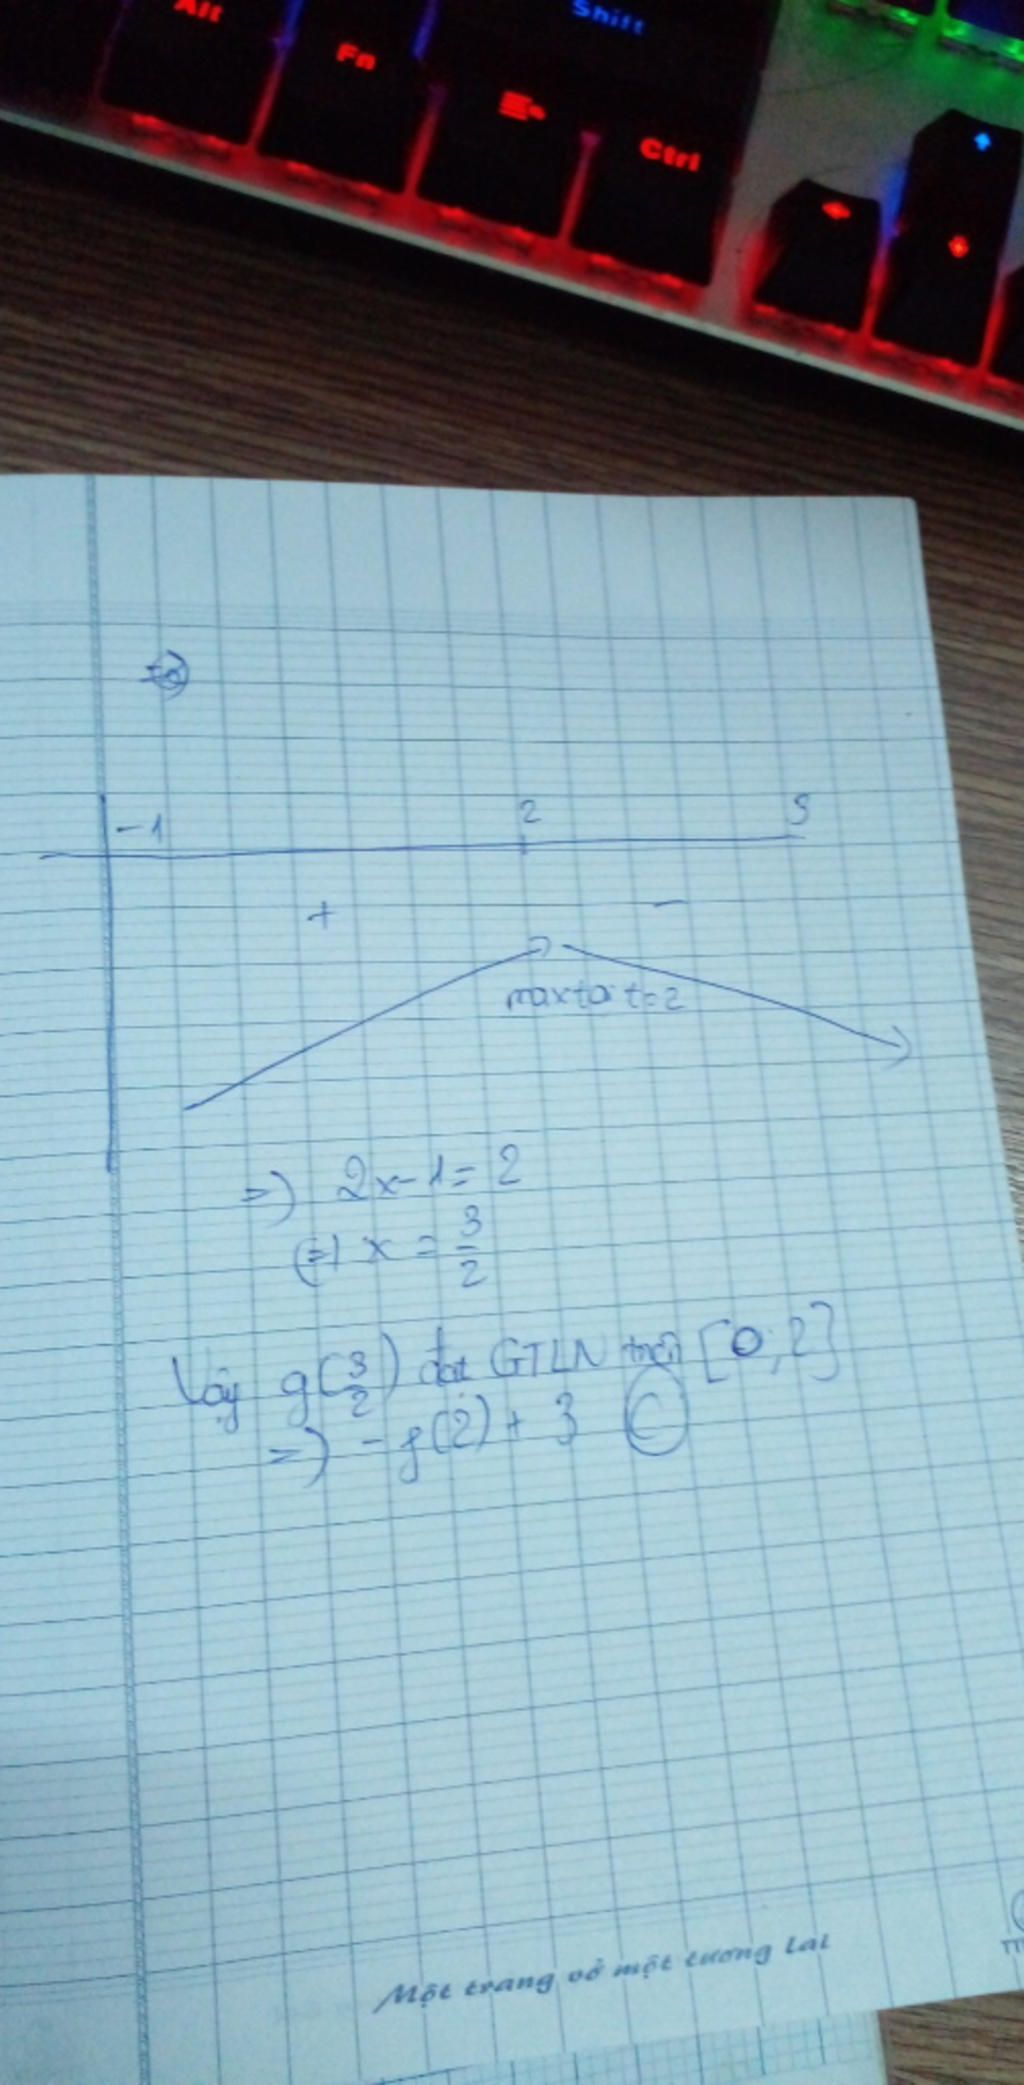 Alt
Fn
Shift
Ctrl
-1 2 3
+ -
max tại t=2
=> 2x-1=2
(=) x = 3/2
Vậy g(3/2) đạt GTLN trên [0;2]
=> -f(2)+3 C
Một trang vở một tương lai